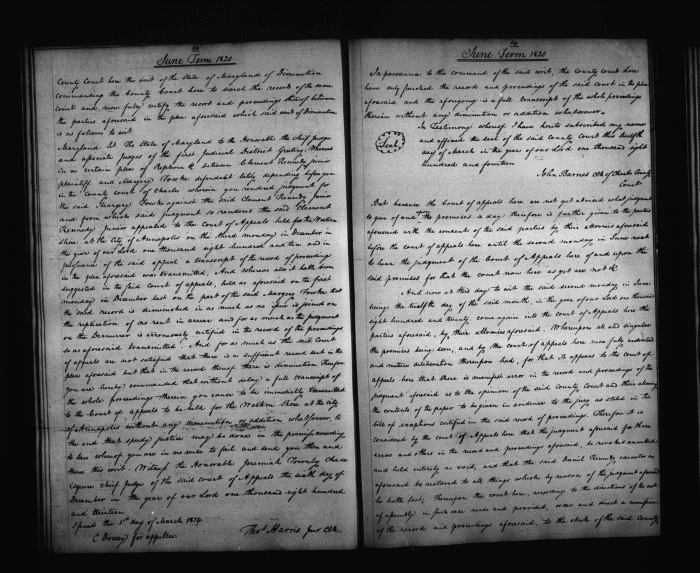 68
June Term 1820
County Court here the writ of the State of Maryland of Diminution
commanding the County Court here to search the record of the same
court and more fully certify the record and proceedings thereof between
the parties aforesaid in the plea aforesaid which said writ of Diminution
is as follows to wit
Maryland Sct. The State of Maryland to the Honorable the chief judges
and associate judges of the first Judicial District Greeting: Whereas
in a certain plea of Replevin between Clement Kennedy junior
plaintiff and Margery Fowke defendant lately depending before you
in the county court of Charles wherein you rendered judgment for
the said Margery Fowke against the said Clement Kennedy junior
and from which said judgment so rendered the said Clement
Kennedy junior appealed to the Court of Appeals held for the Western
shore at the city of Annapolis on the third monday in December in
the year of our Lord one thousand eight hundred and ten and in
pursuance of the said appeal a transcript of the record of proceedings
in the plea aforesaid was transmitted. And whereas also it hath been
suggested in the said court of appeals, held as aforesaid on the first
monday in December last on the part of the said Margery Fowke that
the said record is diminished in as much as no issue is joined on
the replication of no rent in arrear and for as much as the judgment
on the Demurrer is erroneously certified in the record of the proceedings
so as aforesaid transmitted. And for as much as the said Court
of appeals are not satisfied that there is a sufficient record but in the
plea aforesaid but that in the record thereof there is diminution Therefore
you are hereby commanded that without delay a full transcript of
the whole proceedings therein you cause to be immediately transmitted
to the Court of appeals to be held for the Western Shore at the city
of Annapolis without any diminution or addition whatsoever, to
the end that speedy justice may be done in the premises according
to law whereof you are in no wise to fail and send you then and
there this writ. Witness the Honorable Jeremiah Townley Chase
esquire chief judge of the said court of Appeals the sixth day of
December in the year of our Lord one thousand eight hundred
and thirteen
Issued the 1st day of March 1814
C Dorsey for appellee
Thos Harris Junr Clk.
69
June Term 1820
In pursuance to the command of the said writ, the county court here
have only searched the record and proceedings of the said court in the plea
aforesaid and the aforegoing is a full transcript of the whole proceedings
therein without any diminution or addition whatsoever.
In Testimony whereof I have hereto subscribed my name
and affixed the seal of the said county Court this twelfth
day of March in the year of our Lord one thousand eight
hundred and fourteen
Seal
John Barnes Clk of Charles County
Court
But because the Court of appeals here are not yet advised what judgment
to give of and the premises a day therefore is further given to the parties
aforesaid with the consent of the said parties by their attornies aforesaid
before the court of appeals here until the second monday in June next
to hear the judgment of the Court of Appeals here of and upon the
said premises for that the court now here as yet are not &c.
And now at this day to wit the said second monday in June
being the twelfth day of the said month, in the year of our Lord one thousand
eight hundred and twenty come again into the Court of Appeals here the
parties aforesaid, by their attornies aforesaid. Whereupon all and singular
the premises being seen, and by the court of appeals here now fully understood
and mature deliberation thereupon had, for that it appears to the court of
appeals here that there is manifest error in the record and proceedings of the
judgment aforesaid as to the opinion of the said county court and their allowing
the contents of the paper to be given in evidence to the jury as stated in the
bill of exceptions certified in the said record of proceedings. Therefore it is
considered by the court of Appeals here that the judgment aforesaid for those
errors and others in the record and proceedings aforesaid, be revoked annulled
and held entirely as void, and that the said Daniel Kennedy executor as
aforesaid be restored to all things which by reason of the judgment aforesaid
he hath lost; Thereupon the court here, according to the directions of the act
of assembly in such case made and provided, order and direct a remission
of the record and proceedings aforesaid, to the clerk of the said county